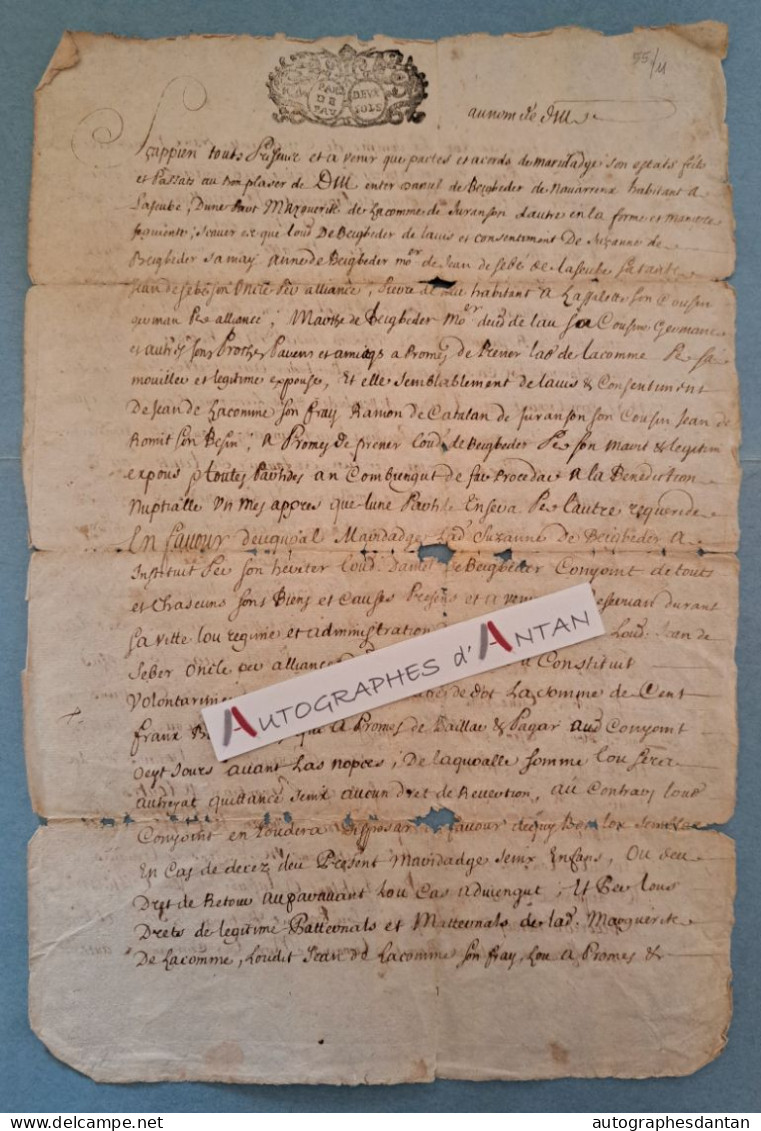 55/11
PAU
DEUX
SOLS
au nom de Diu
Sçappien touts presens et a venir que pactes et acords de maridadye son estats feits
et Passats au bon plaser de Diu enter Daniel de Beigbeder de Nouarrenx habitant a
Laseube, Dune Part Marguerite de Lacomme de Juranson dautre en la forme et maniere
seguiente; scauer es que loud. De Beigbeder de lauis et consentament De Suzanne de
Beigbeder sa may anne de Beigbeder
Jean de sebé son Oncle Per alliance, habitant a Lassalette son Cousin
german Per alliance; Marthe de Beigbeder sa Cousine Germane
et autres sons Proches Parens et amicqs a Promes de Prener lad. de Lacomme Per sa
mouiller et legitime espouse, Et elle semblablement de lauis & Consentiment
de Jean de Lacomme son fray Ramon de Catalan de Juranson son Cousin Jean de
Romit son Besin; a Promes de prener loud. de Beigbeder Per son Marit & legitim
espous ptoutes Partides an Combengut de far Procedar a la Benediction
Nuptialle Un mes appres que lune Partide Ensera Per l'autre requeride
En favour deuqual Maridadge lad. Suzanne De Beigbeder a
Instituit Per son heriter loud. Daniel de Beigbeder Conjoint de touts
et Chascuns sons Biens et Causes Presens et a venir durant
sa vitte lou regime et administration Loud. Jean de
Seber Oncle per allianc a Constituit
Volontarime de dot La somme de Cent
franx que a Promes de Baillar & Pagar aud. Conjoint
Oeyt Jours auant Las nopces; De laqualle somme lou sera
autreyat quittance senx aucun Dret de Reuertion, au Contrary loud.
Conjoint en Poudera disposar en favour
En Cas de decez deu Present Maridadge senx Enfans, Ou deu
Dret de Retour auparauant lou Cas aduiengut; Et Per lous
Drets de legitime Patternals et Matternals de lad. Marguerite
De Lacomme, Loudit Jean de Lacomme son fray, Lou a Promes &
AUTOGRAPHES d'ANTAN
autographesdantan